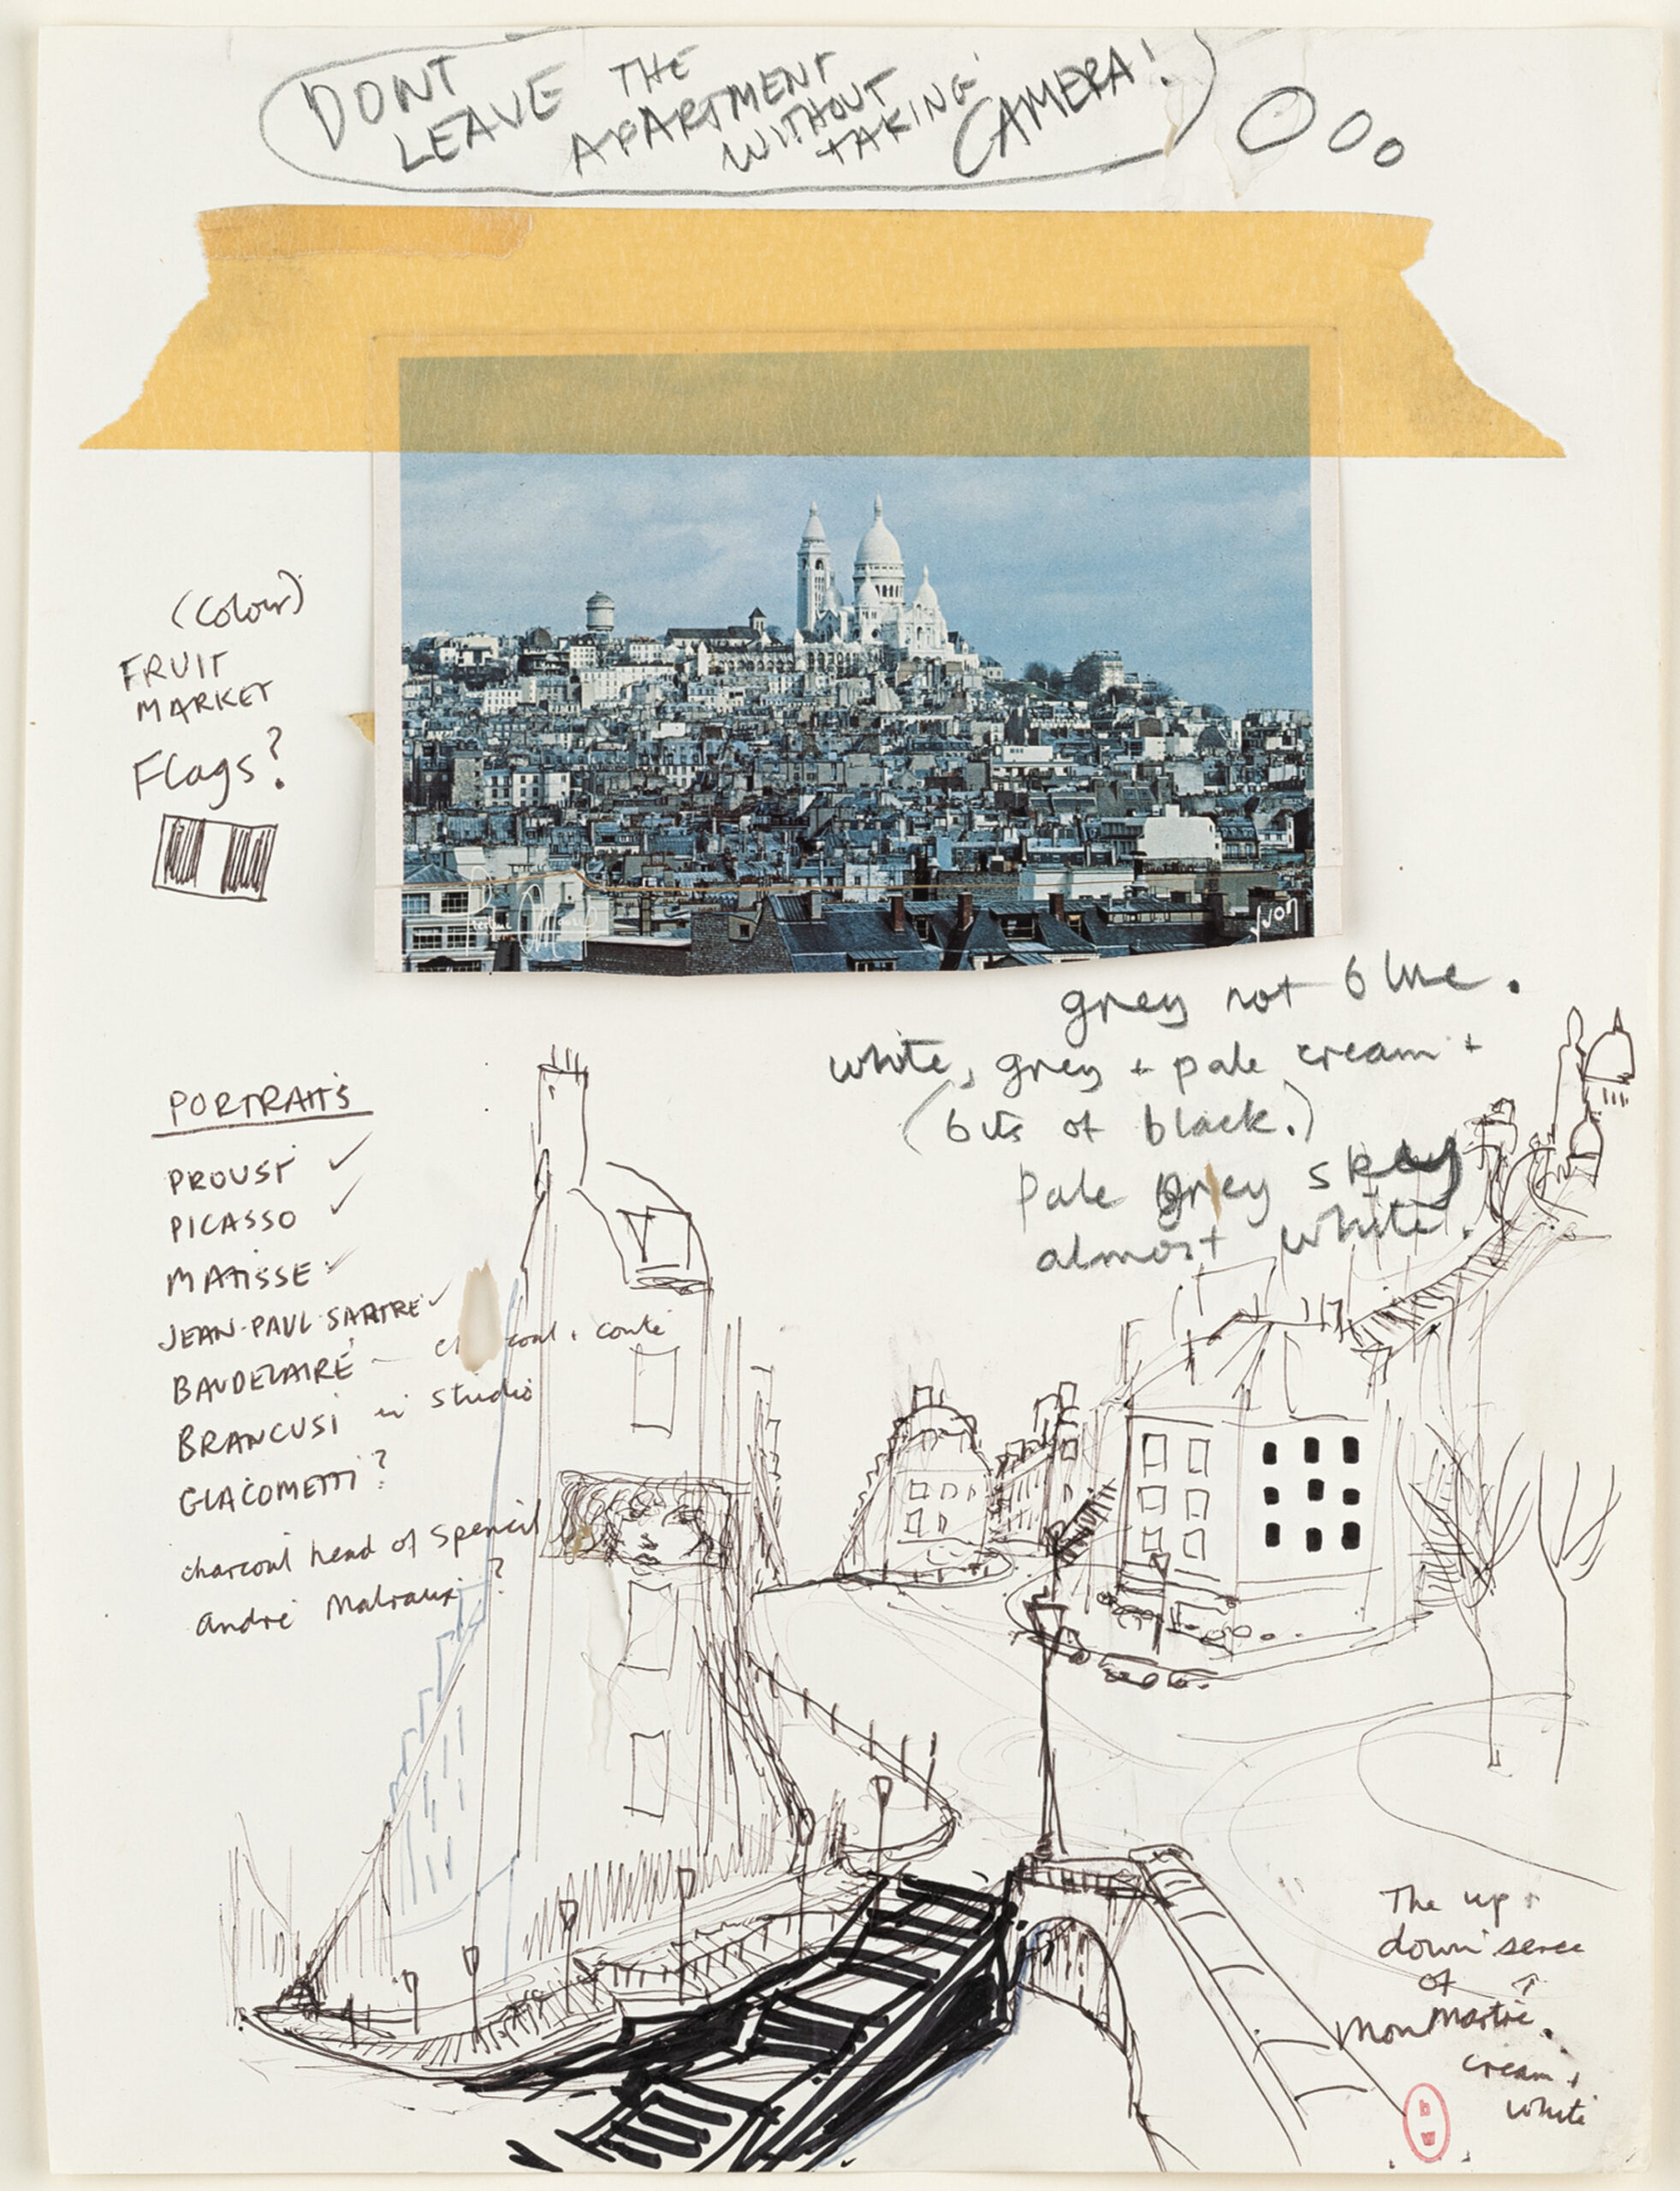 DONT
LEAVE THE
APARTMENT
WITHOUT
TAKING
CAMERA!
(Colour)
FRUIT
MARKET
Flags?
yvon
grey not blue.
white, grey + pale cream +
(bits of black.)
Pale grey sky
almost white.
PORTRAITS
PROUST ✓
PICASSO ✓
MATISSE ✓
JEAN-PAUL SARTRE ✓
BAUDELAIRE – coal + conte
BRANCUSI in studio
GIACOMETTI?
charcoal head of
André Malraux?
The up +
down sense
of
Montmartre.
cream +
white
b
w